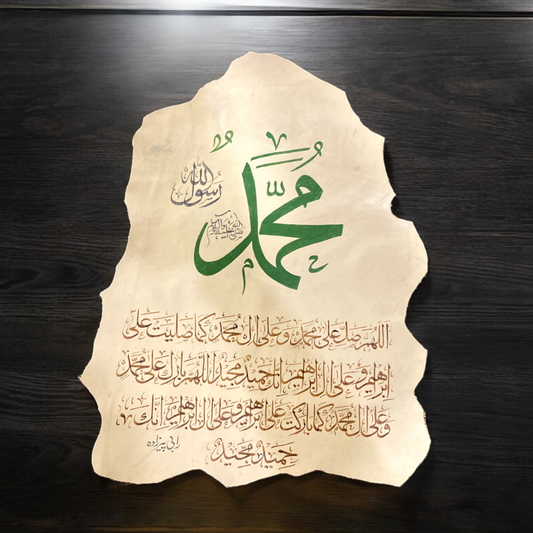 مُحَمَّدٌ
رَسُولُ اللّٰه
صلى الله عليه وآله وسلم
اللهم صل على محمد وعلى ال محمد كما صليت على
ابراهيم وعلى ال ابراهيم انك حميد مجيد اللهم بارك على محمد
وعلى ال محمد كما باركت على ابراهيم وعلى ال ابراهيم انك
حميد مجيد